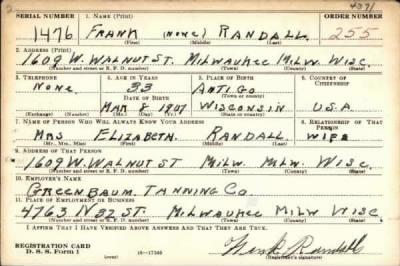 4371
SERIAL NUMBER 1. NAME (Print) ORDER NUMBER
1476 FRANK (NONE) RANDALL 255
(First) (Middle) (Last)
2. ADDRESS (Print)
1609 W. WALNUT ST. MILWAUKEE MILW. WISC.
(Number and street or R. F. D. number) (Town) (County) (State)
3. TELEPHONE 4. AGE IN YEARS 5. PLACE OF BIRTH 6. COUNTRY OF CITIZENSHIP
NONE. 33 ANTIGO
DATE OF BIRTH (Town or county)
MAR 8 1907 WISCONSIN U.S.A
(Exchange) (Number) (Mo.) (Day) (Yr.) (State or country)
7. NAME OF PERSON WHO WILL ALWAYS KNOW YOUR ADDRESS 8. RELATIONSHIP OF THAT PERSON
MRS ELIZABETH. RANDALL WIFE
(Mr., Mrs., Miss) (First) (Middle) (Last)
9. ADDRESS OF THAT PERSON
1609 W. WALNUT ST MILW. MILW. WISC.
(Number and street or R. F. D. number) (Town) (County) (State)
10. EMPLOYER'S NAME
GREENBAUM. TANNING CO.
11. PLACE OF EMPLOYMENT OR BUSINESS
4763 N 32 ST. MILWAUKEE MILW WISC
(Number and street or R. F. D. number) (Town) (County) (State)
I AFFIRM THAT I HAVE VERIFIED ABOVE ANSWERS AND THAT THEY ARE TRUE.
REGISTRATION CARD
D. S. S. Form 1 16-17105 Frank Randall
(Registrant's signature)